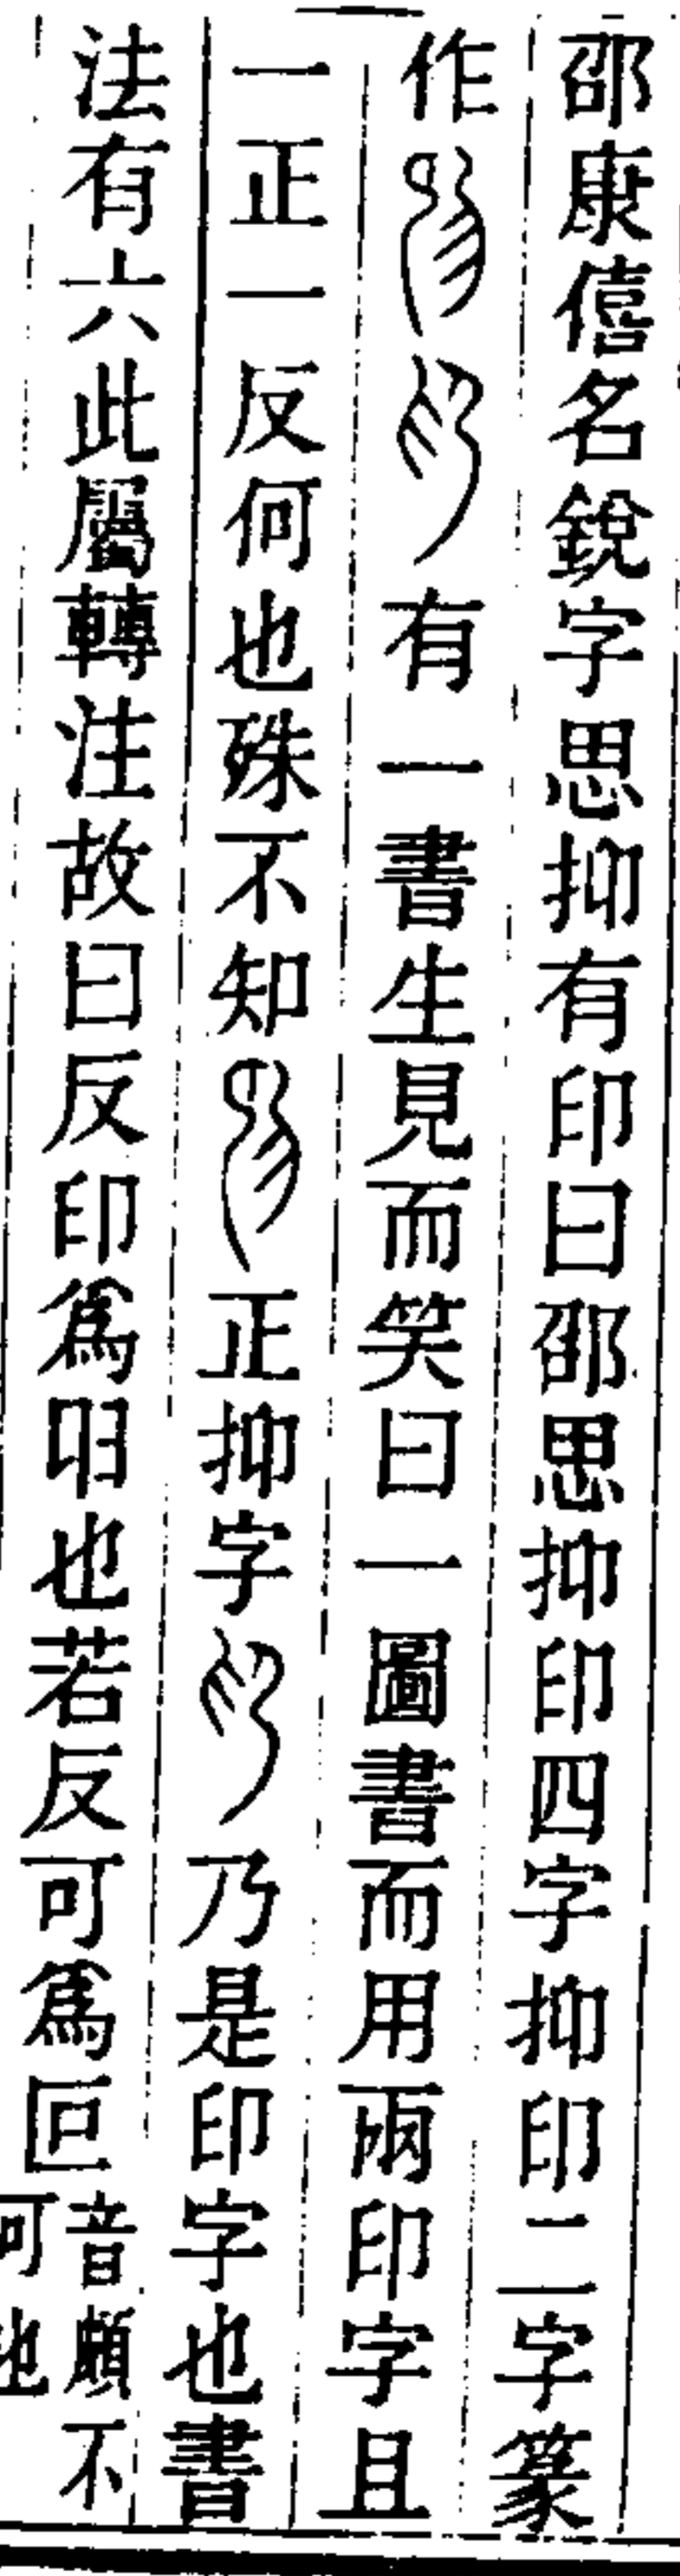 邵康僖名銳字思抑有印曰邵思抑印四字抑印二字篆
作有一書生見而笑曰一圖書而用兩印字且
一正一反何也殊不知正抑字乃是印字也書
法有六此屬轉注故曰反印爲𢑏也若反可爲叵音頗不
可也